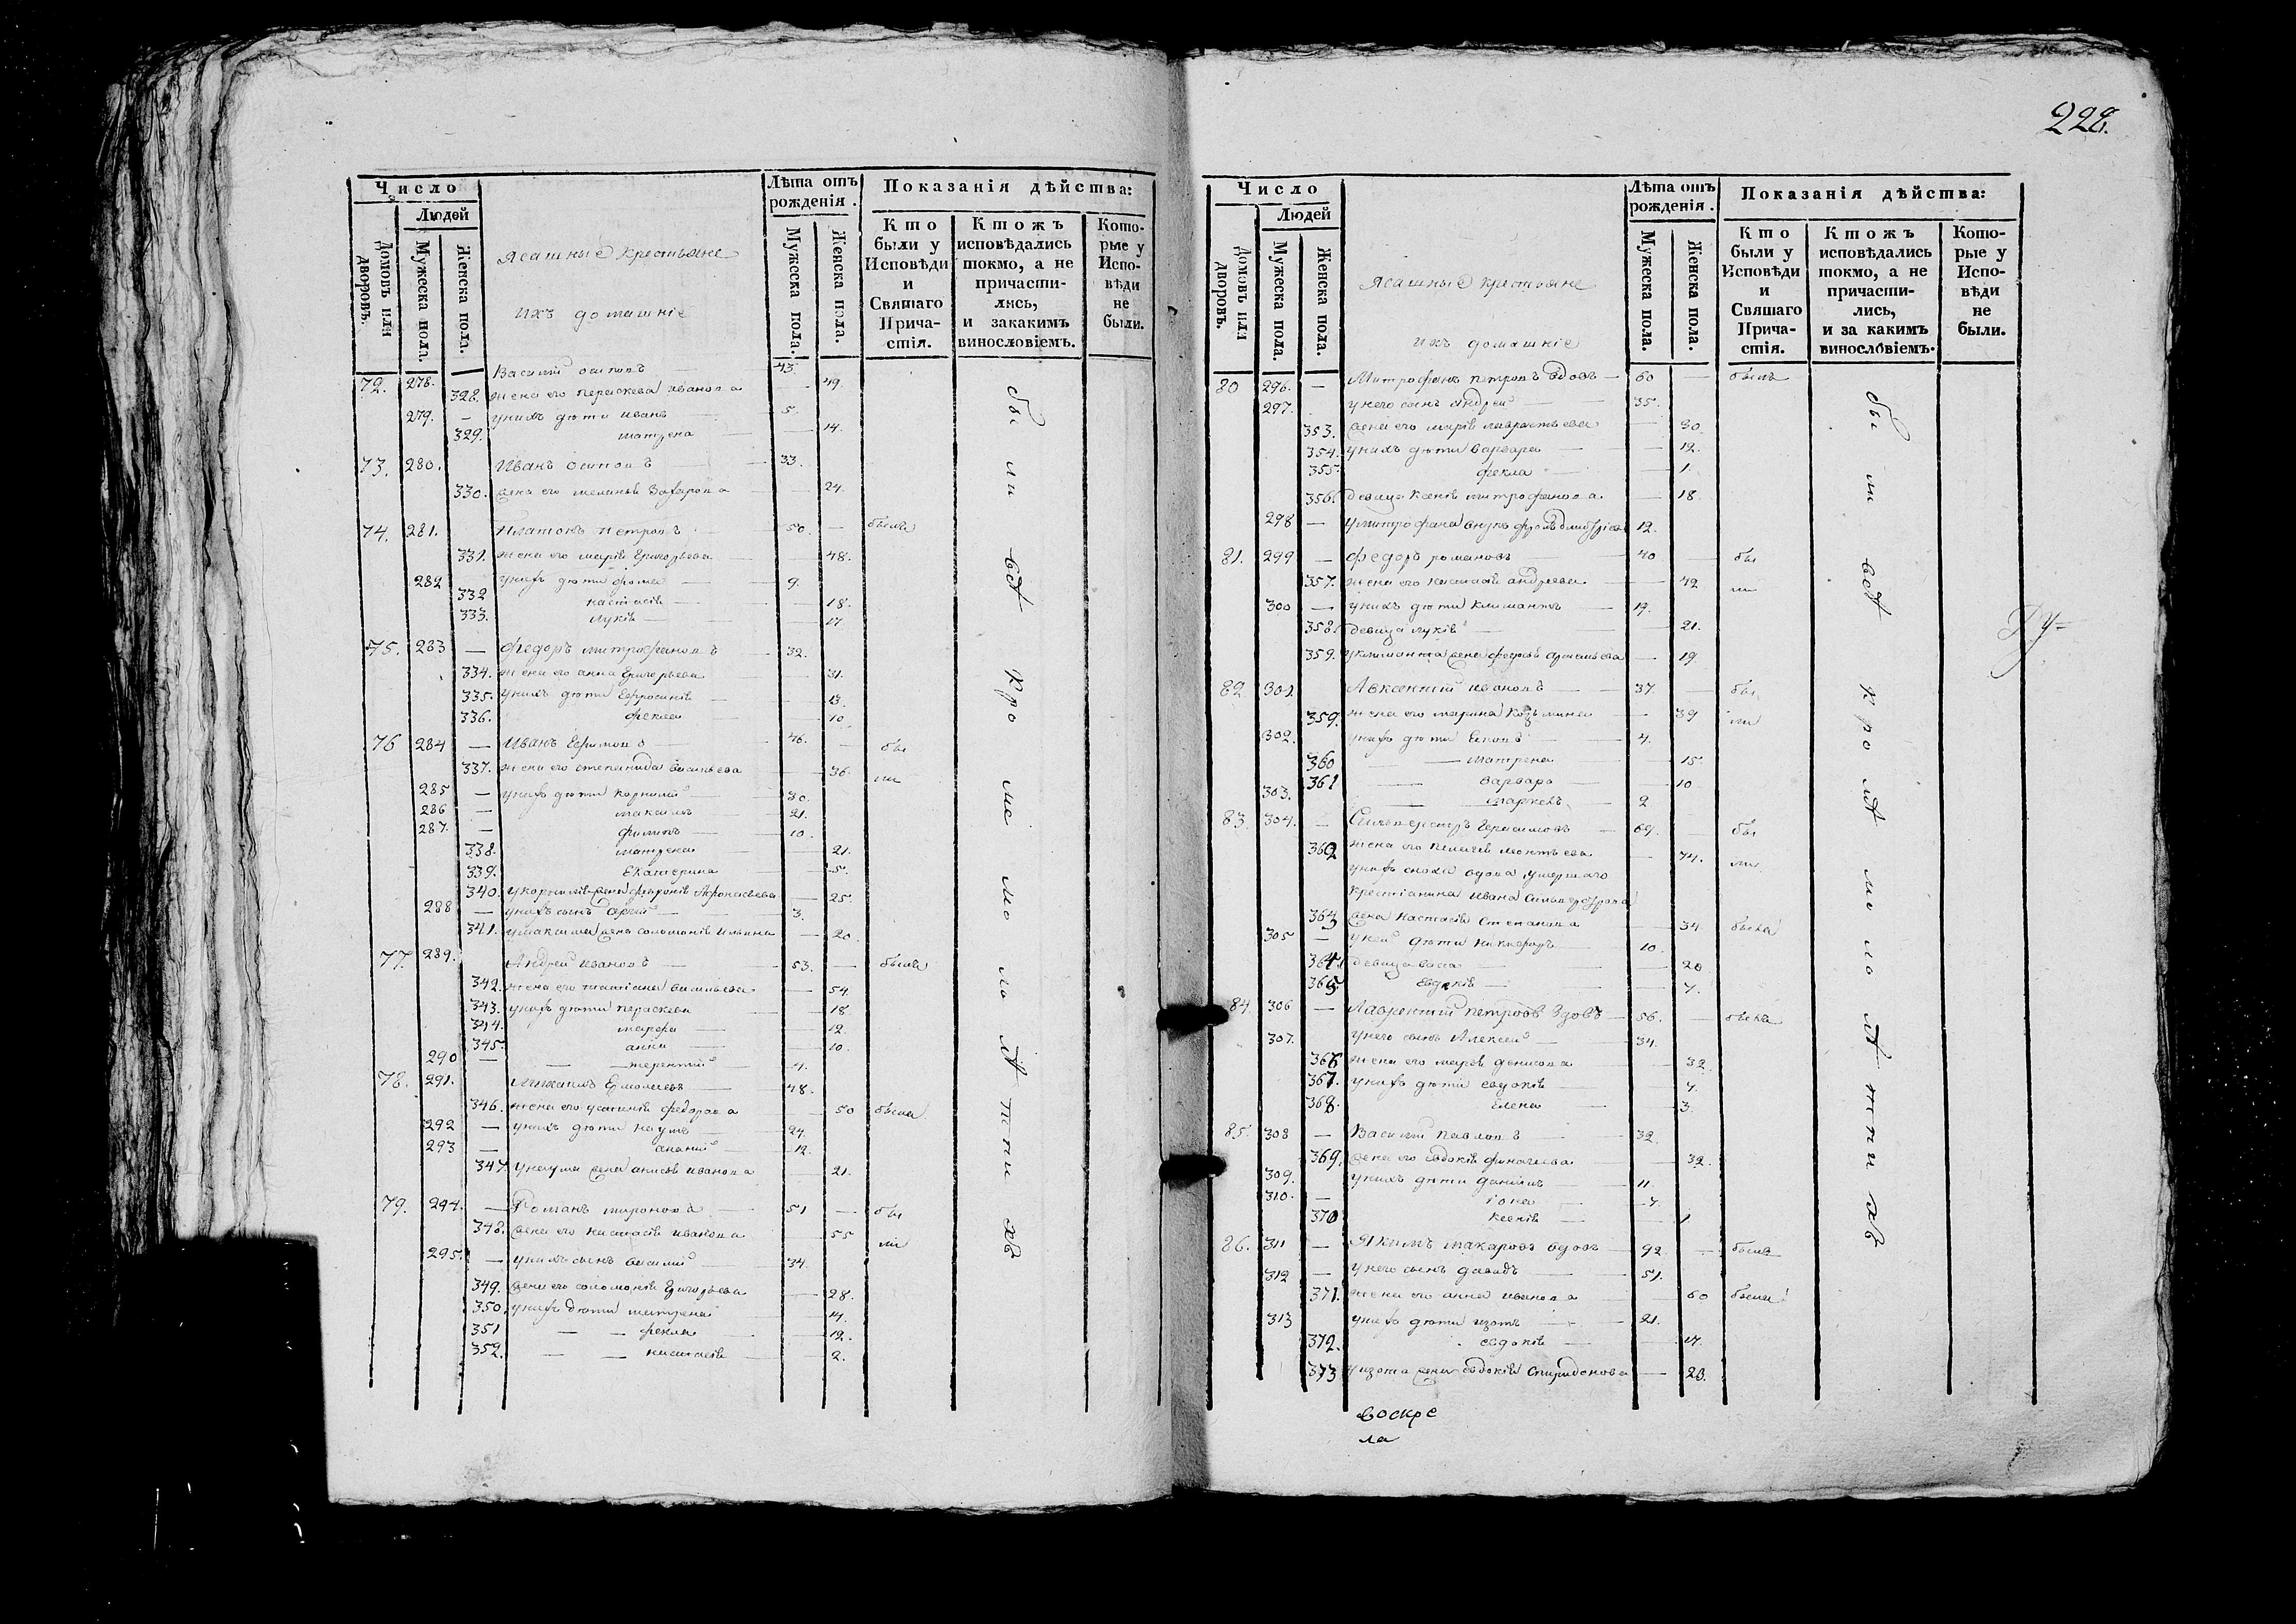 228.
Число
Людей
Домовъ или дворовъ.
Мужеска пола.
Женска пола.
Ясашные крестьяне
ихъ домашніе
Лѣта отъ рожденія.
Мужеска пола.
Женска пола.
Показанія дѣйства:
Кто были у Исповѣди и Святаго Прича-стія.
Ктожъ исповѣдались токмо, а не причасти-лись, и закакимъ винословіемъ.
Кото-рые у Испо-вѣди не были.
72. 278. Василій осиповъ 45.
328. жена его параскева иванова 49.
279. — унихъ дѣти иванъ 5.
329. матрена 14.
73. 280. Иванъ осиповъ 33.
330. жена его меланья Захарова 24.
74. 281. Платонъ петровъ 50. — были
331. жена его марія Григорьева 48.
282 унихъ дѣти фома 9.
332 настасія 18.
333. лукія 17
75. 283 — Федоръ митрофановъ 32.
334. жена его анна Григорьева 31.
335. унихъ дѣти Ефросинія 13.
336. фекла 10
76 284 — Иванъ Ефимовъ 46. — бы
337. жена его степанида васильева 36. ли
285 — унихъ дѣти корнилій 30.
286 — максимъ 21.
287. — филипъ 10.
338. матрена 21.
339. Екатерина 5.
340. укорнилія жена февронія Афонасьева 25.
288 — унихъ сынъ 3.
341. умаксима жена соломонія ильина 20.
77. 289. Андрей ивановъ 53. — были
342. жена его татіана васильева 54
343. унихъ дѣти параскева 18
344. марфа 12.
345. анна 10.
290 — терентій 4.
78. 291. Михаилъ Ермолаевъ 48.
346. жена его устинія федорова 50 были
292 — унихъ дѣти наумъ 24.
293 — ананій 12.
347. унаума жена анисія иванова 21.
79. 294. — Романъ мироновъ 51 — бы
348. жена его настасія иванова 55 ли
295. — унихъ сынъ василій 34.
349. жена его соломонія Григорьева 28.
350. унихъ дѣти матрена 14.
351 — — фекла 12.
352. — — настасія 2.
бы ли всѣ кро ме мо лѣ тни хъ
Число
Людей
Домовъ или дворовъ.
Мужеска пола.
Женска пола.
Ясашные крестьяне
ихъ домашніе
Лѣта отъ рожденія.
Мужеска пола.
Женска пола.
Показанія дѣйства:
Кто были у Исповѣди и Святаго Прича-стія.
Ктожъ исповѣдались токмо, а не причасти-лись, и за какимъ винословіемъ.
Кото-рые у Испо-вѣди не были.
80 296. — Митрофанъ петровъ вдовъ — 60 — былъ
297. унего сынъ андрей 35.
353. жена его марія лаврентьева 30
354. унихъ дѣти варвара 12.
355. фекла 1
356. девица ксенія митрофанова 18
298 — умитрофана внукъ фролъ дмитріевъ 12.
81. 299 — федоръ романовъ 40 — бы
357. жена его настасія андреева 42 ли
300 — унихъ дѣти климантъ 19.
358. девица лукія 21.
359. уклиманта жена федосья артемьева — 19
82 301. Авксентій ивановъ 37. — бы
359. жена его марина козьмина 39 ли
302. унихъ дѣти 4.
360 — матрена 15.
361 варвара 10
303. — маркелъ 2
83. 304. — Сильвестръ Герасимовъ 69. — бы
362 жена его пелагея леонтьева 74. ли
унихъ сноха вдова умершаго
крестіанина ивана сильвестрова
363 жена настасія степанова 34 была
305 — уней дѣти никифоръ 10.
364 девица васса 20
365 евдокія 7.
84. 306 — Лаврентій петровъ вдовъ — 56. — были
307. унего сынъ Алексей 34.
366 жена его марья денисова 32
367. унихъ дѣти евдокія 7.
368. Елена 3.
85. 308 — Василій павловъ 32.
369. жена его евдокія финагиева 32.
309. унихъ дѣти даніилъ 11.
310. — іона 7.
370 ксенія 1
86. 311 — Якимъ макаровъ вдовъ 92. — былъ
312 — унего сынъ давидъ 51.
371. жена его анна иванова 60 были
313 унихъ дѣти изотъ 21.
372. евдокія 17.
373 уизота жена евдокія Спиридонова — 23.
бы ли всѣ кро мѣ мо ло лѣ тни хъ
Ду=
воскре
ла